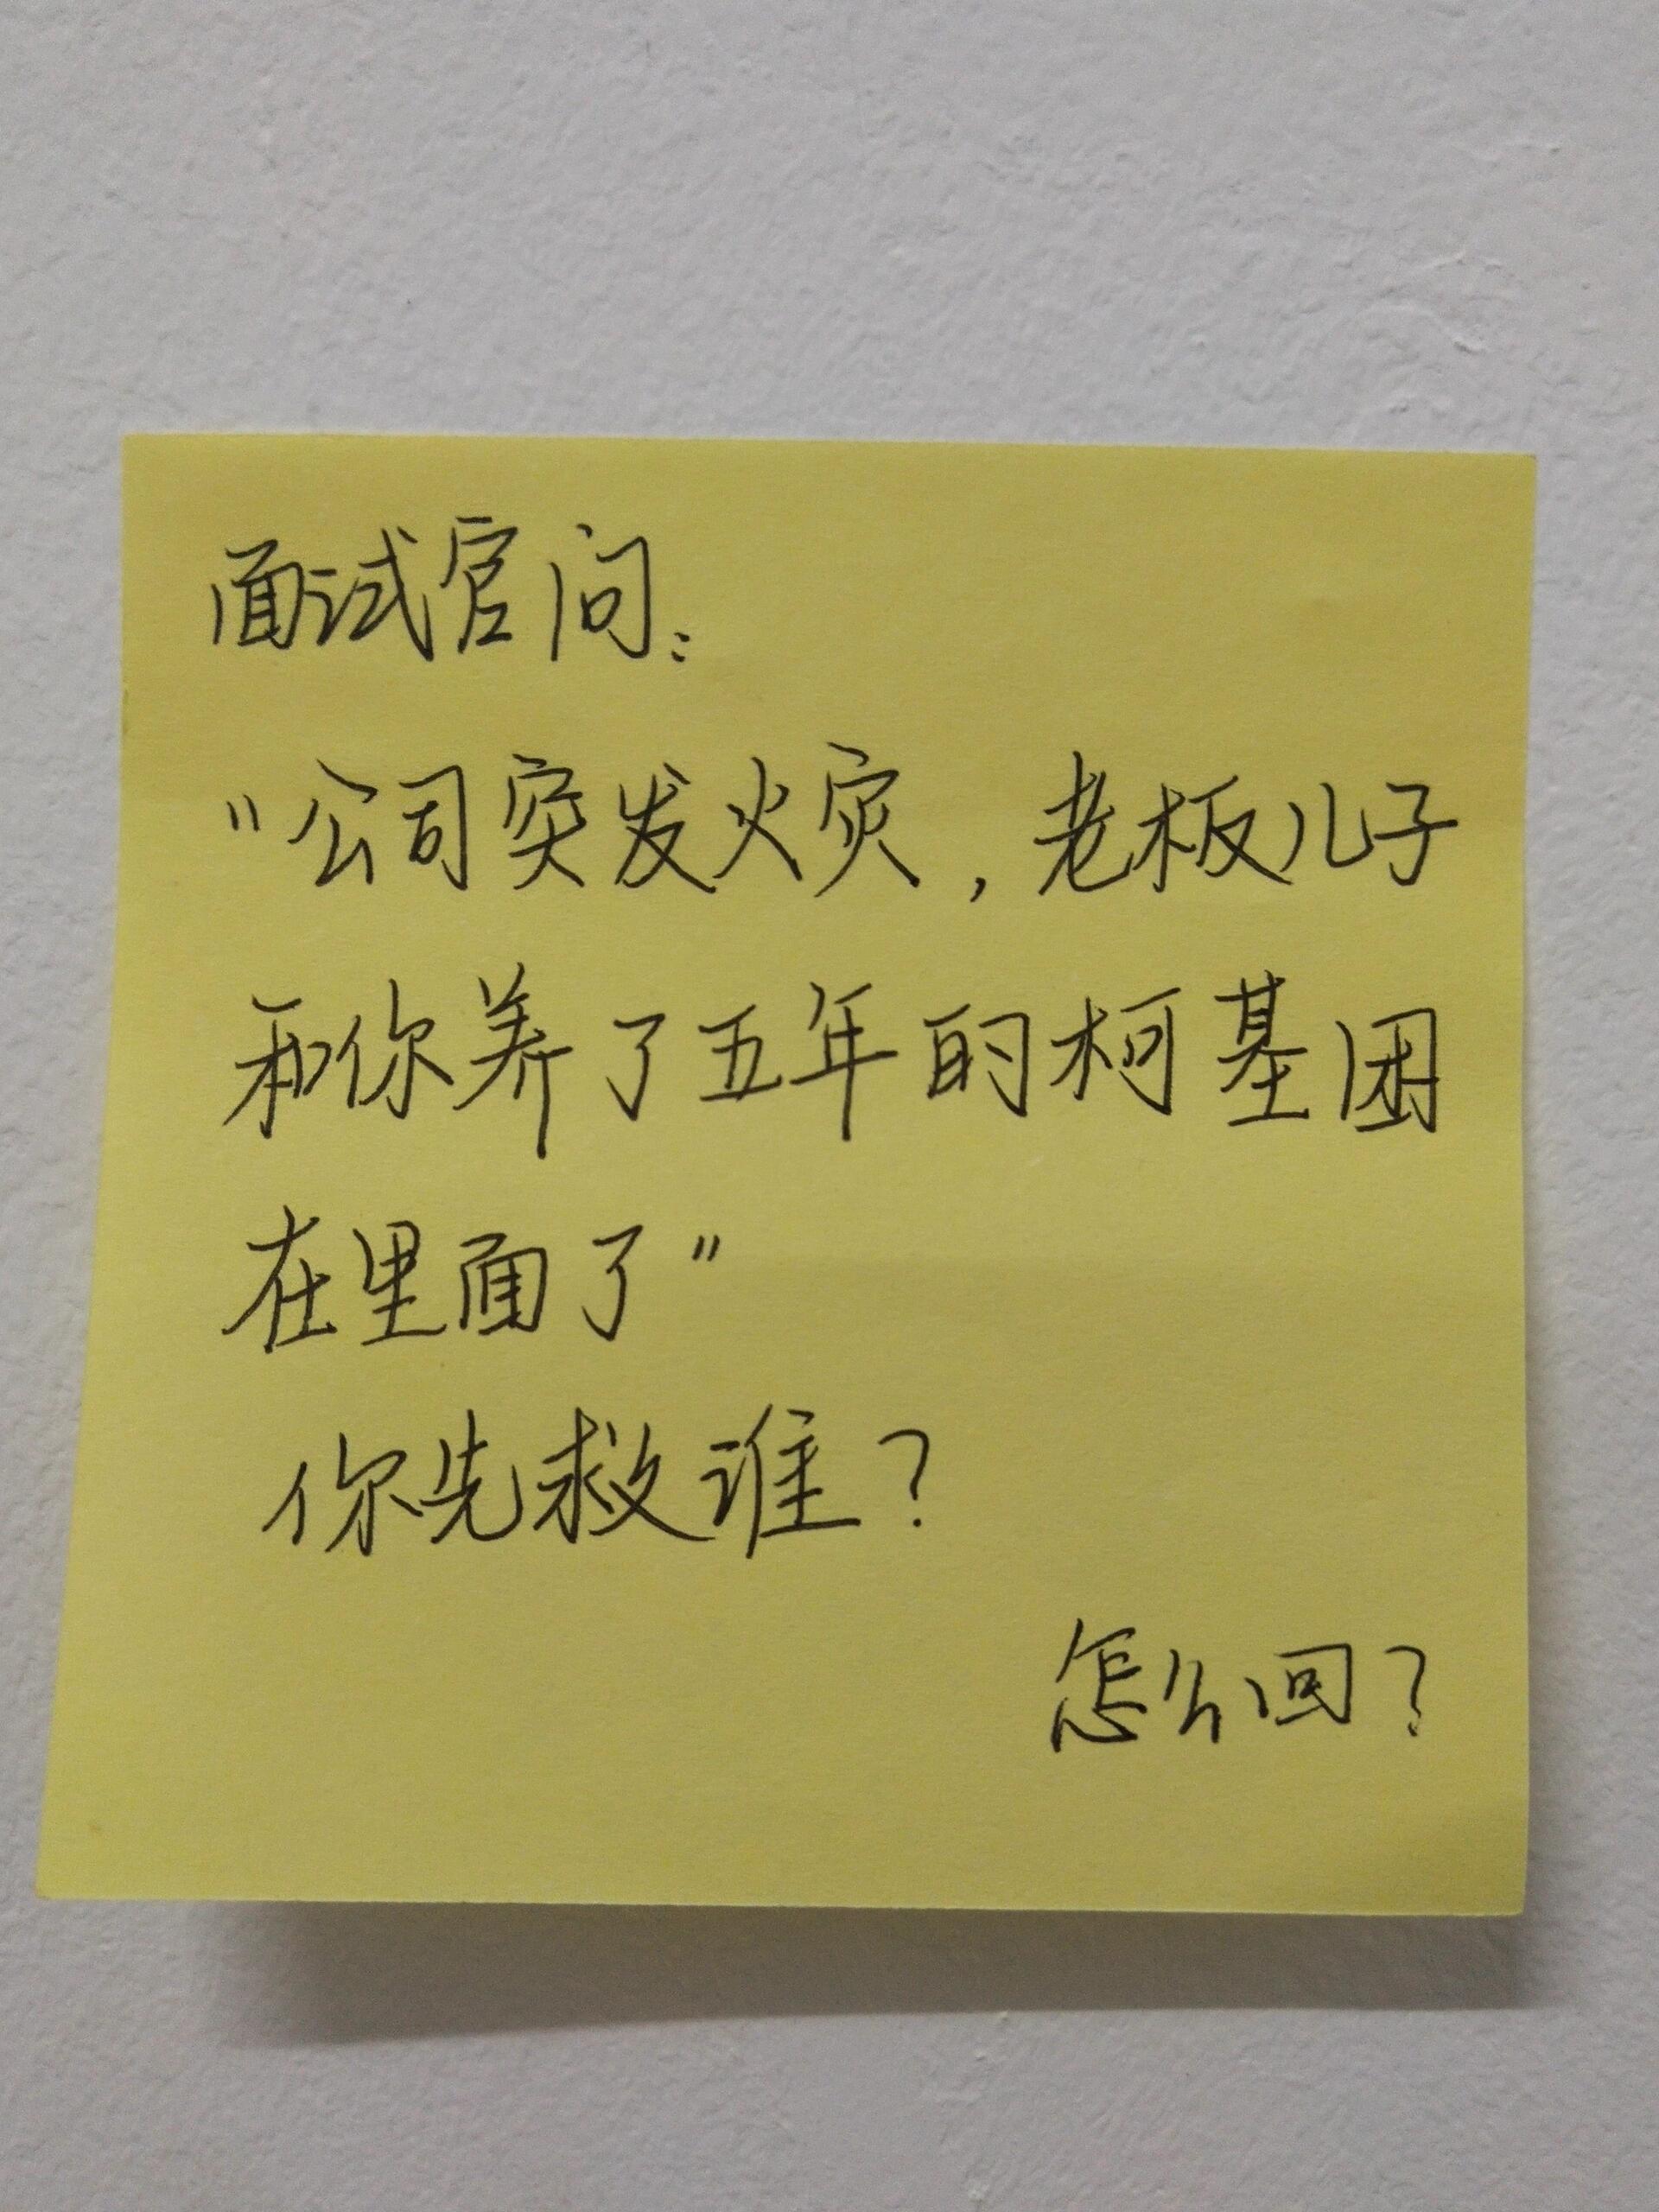 面试官问：
“公司突发火灾，老板儿子
和你养了五年的柯基困
在里面了”
你先救谁？
怎么回？